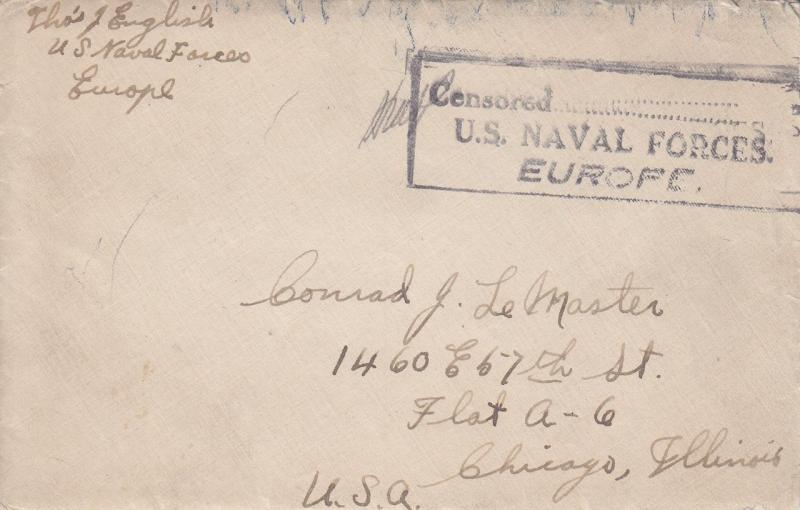 Tho's J English
U S Naval Forces
Europe
Censored
U.S. NAVAL FORCES.
EUROPE.
Conrad J. Le Master
1460 E 57th St.
Flat A-6
Chicago, Illinois
U.S.A.